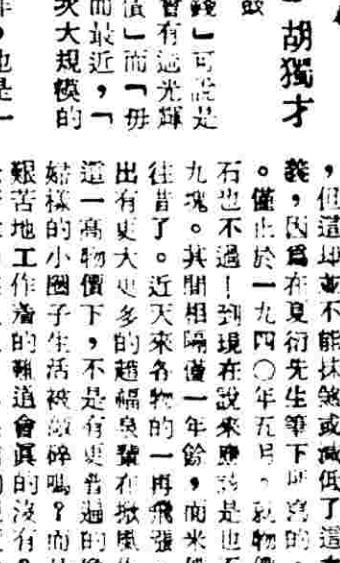 胡獨才
錢」可說是
曾有過光輝
債」而「毋
而最近,「
次大規模的
年,也是一
,但這却並不能抹煞或減低了這
義,因爲在夏衍先生筆下所寫的
。僅止於一九四〇年五月,就物價
石也不過!到現在說來應該是也
九塊。其間相隔僅一年餘,而米價
往昔了。近天來各物的一再飛漲
出有更大更多的趙福泉輩在掀風作
這一高物價下,不是有更普遍的
姑樣的小圈子生活被敲碎嗎?而
艱苦地工作着的難道會眞的沒有?